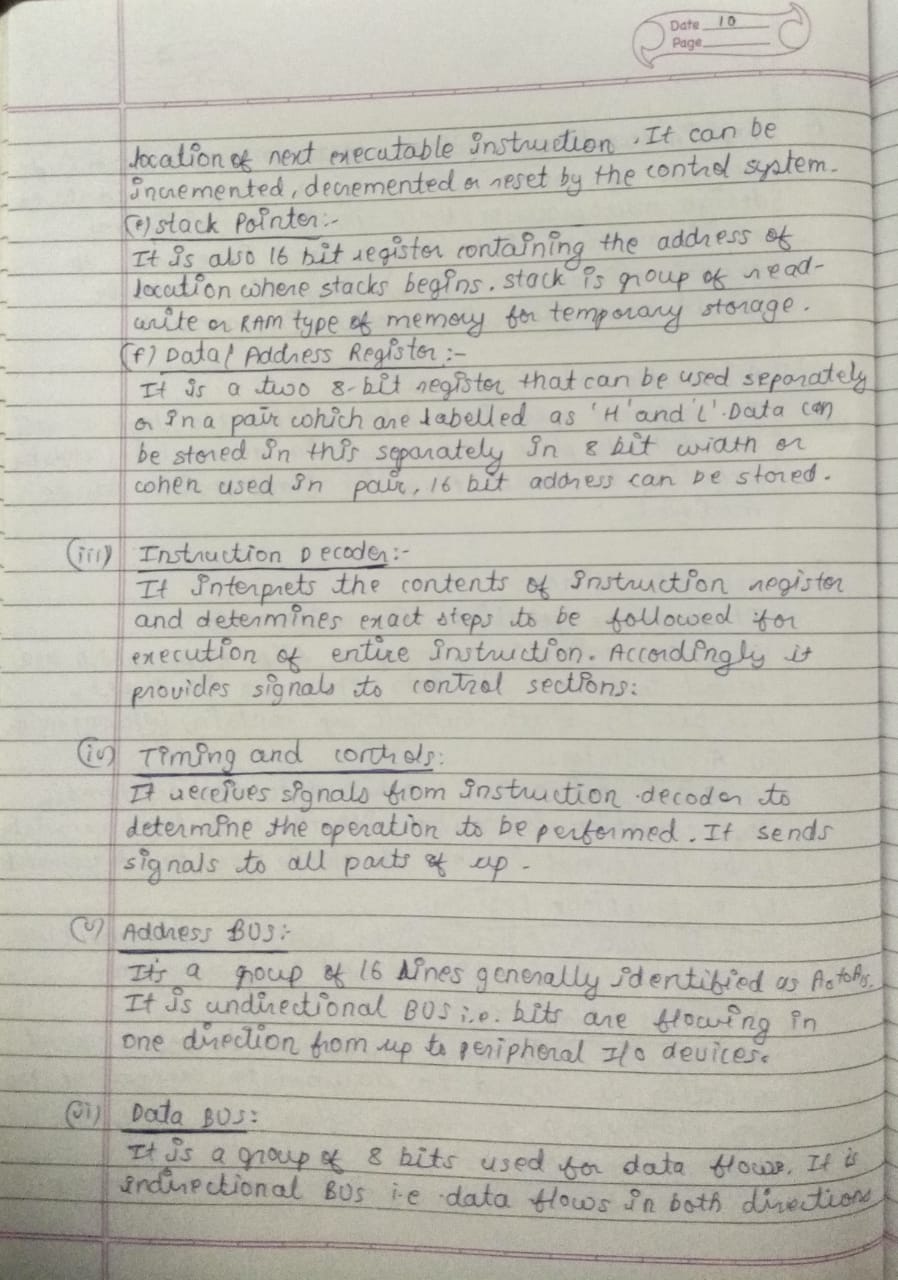 Date 10
Page
location of next executable instruction. It can be
incremented, decremented or reset by the control system.
(e) stack Pointer:-
It is also 16 bit register containing the address of
location where stacks begins. stack is group of read-
write or RAM type of memory for temporary storage.
(f) Data/ Address Register:-
It is a two 8-bit register that can be used separately
or in a pair which are labelled as 'H' and 'L'. Data can
be stored in this separately in 8 bit width or
when used in pair, 16 bit address can be stored.
(iii) Instruction Decoder:-
It interprets the contents of instruction register
and determines exact steps to be followed for
execution of entire instruction. Accordingly it
provides signals to control sections:
(iv) Timing and controls:
It receives signals from instruction decoder to
determine the operation to be performed. It sends
signals to all parts of up.
(v) Address BUS:-
It's a group of 16 lines generally identified as A0 to A15.
It is undirectional BUS i.e. bits are flowing in
one direction from up to peripheral I/o devices.
(vi) Data BUS:
It is a group of 8 bits used for data flows. It is
indirectional BUS i.e data flows in both directions